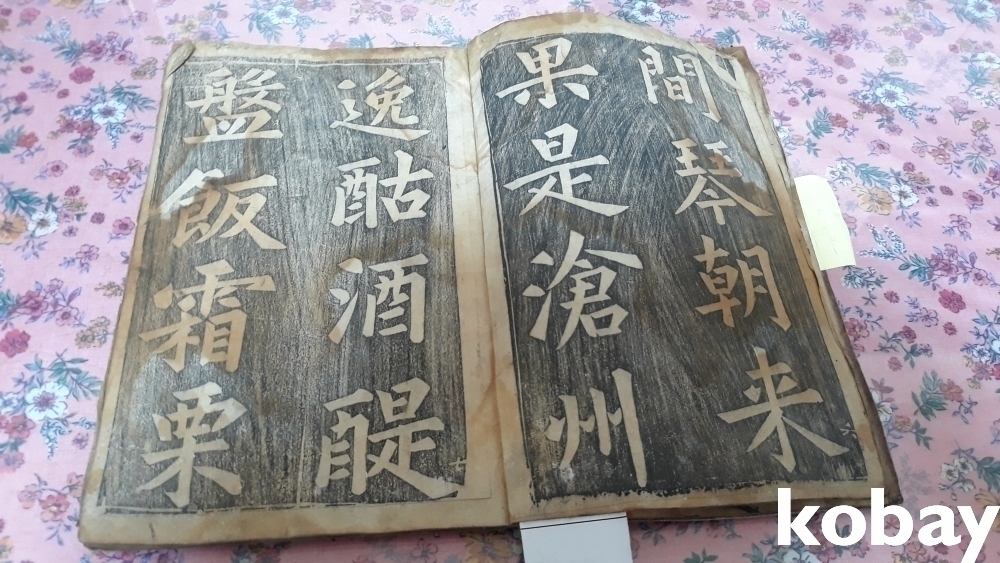 間琴朝来
果是滄州
逸酤酒醍
盤飯霜栗
kobay